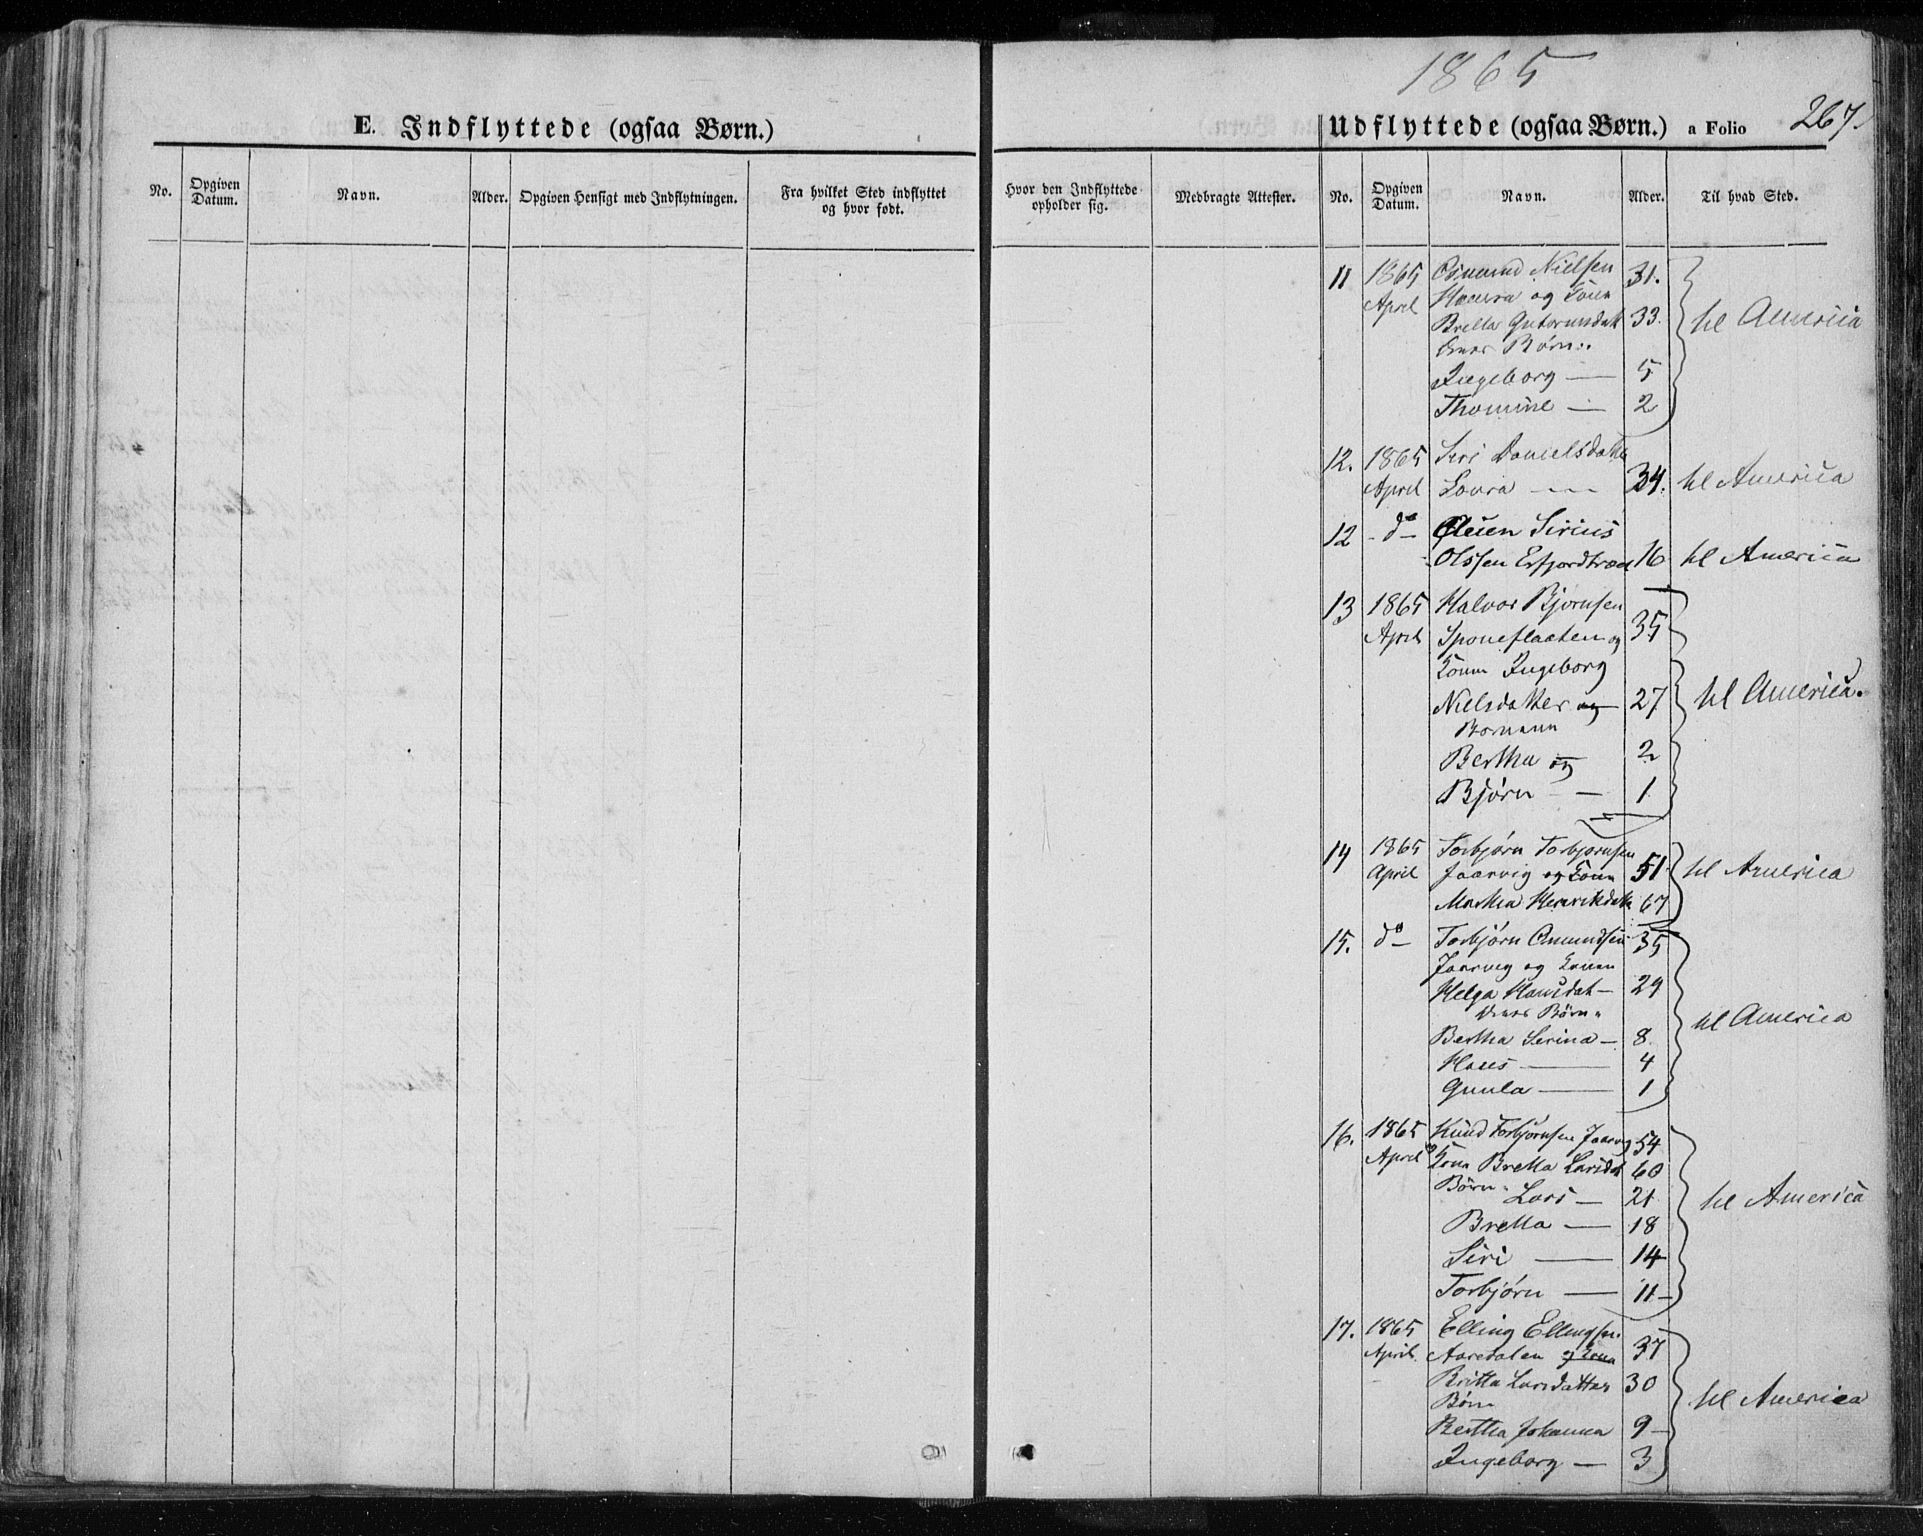 1865
267.
E. Indflyttede (ogsaa Børn.)
Udflyttede (ogsaa Børn.) a Folio
No. Opgiven Datum. Navn. Alder. Opgiven Hensigt med Indflytningen. Fra hvilket Sted indflyttet og hvor født. Hvor den Indflyttede opholder sig. Medbragte Attester. No. Opgiven Datum. Navn. Alder. Til hvad Sted.
11 1865 Osmund Nielsen 31.
April og Kone
Britta Guttormsdatt 33. til America
Børn:
Ingeborg — 5
Thomine — 2
12. 1865 Siri Danielsdatter
April Lovra — 34. til America
12 - do - Sirius
Olssen Erfjordtræe 16 til America
13 1865 Halvor Bjørnsen
April Sponeflaaten og 35
Kone Ingeborg
Nielsdatter og 27 til America.
Børnene
Bertha og 2
Bjørn — 1
14 1865 Torbjørn Torbjørnsen
April Jaarvig og Kone 51 til America
Martha Henrikdatt 67
15. do - Torbjørn Omundsen 35
Jaarvig og Konen
Helga Hansdat — 29
Børn
Bertha Serina — 8 til America
Hans — 4
Gunla — 1
16. 1865 Knud Torbjørnsen Jaarvig 54
April Kone Britta Larsdat 60
Børn: Lars — 21 til America
Britta — 18
Siri — 14
Torbjørn — 11 —
17. 1865 Elling Ellingsen
April. Aaredalen og Kone 37
Britta Larsdatter 30
Børn til America
Bertha Johanna 9 —
Ingeborg — 3